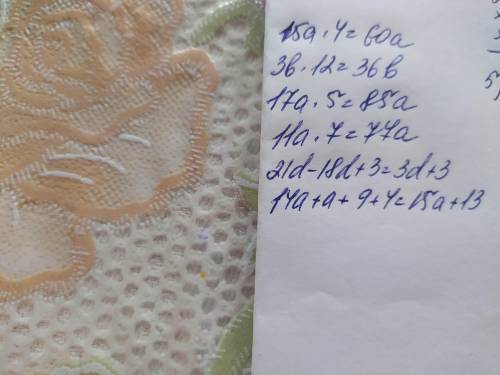 15a · 4 = 60a
3b · 12 = 36b
17a · 5 = 85a
11a · 7 = 77a
21d - 18d + 3 = 3d + 3
14a + a + 9 + 4 = 15a + 13
5